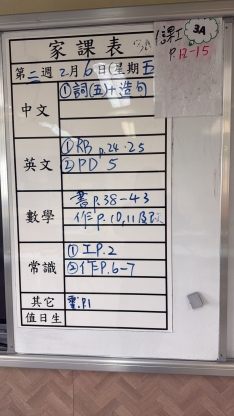 家課表
第二週 2月6日(星期五
中文
①詞(五)+造句
英文
①RB p.24-25
②PD 5
數學
書P.38-43
作P.10,11及
常識
①工P.2
②作P.6-7
其它
P1
值日生
3A
P.12-15